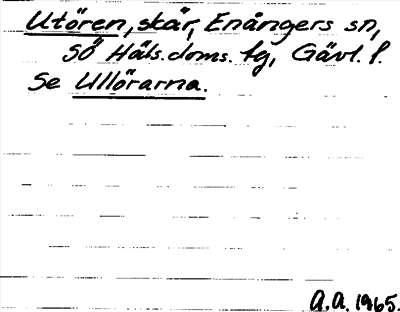 Utören, skär, Enångers sn,
Sö Häls. doms. tg, Gävl. l.
Se Ullörarna.
A.A. 1965.